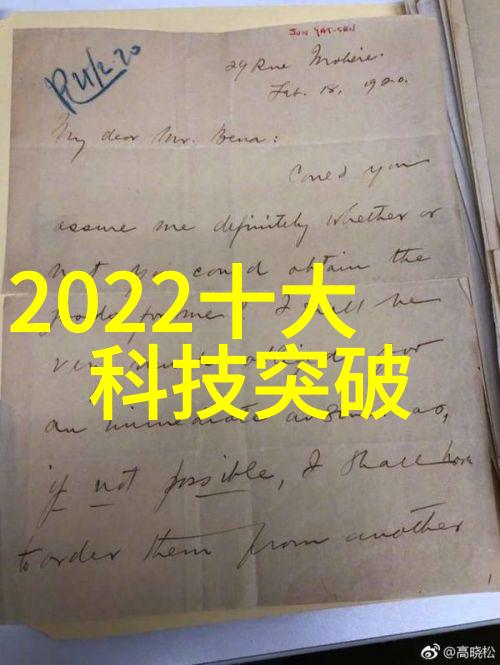 SUN YAT-SEN
R 21/2.20
29 Rue Molière.
Feb. 18, 1920.
My dear Mr.
Could you
assure me definitely whether or
not you could obtain the
for me? I shall be
2022十大
科技突破
very much
an immediate as,
if not possible, I shall have
to order them from another
@高晓松